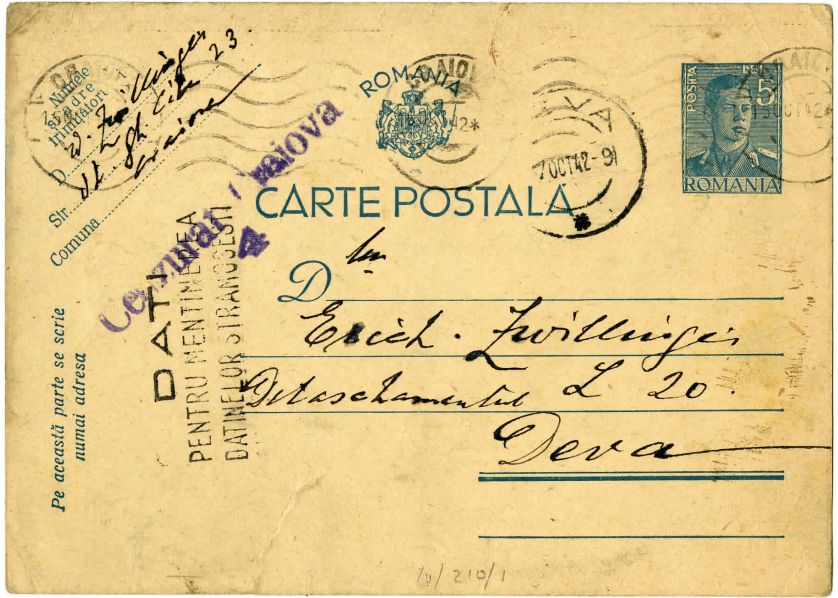 Numele
și adresa
trimițătorului
D. W. Zwillinger
Str. Gh. Țițu 23
Comuna Craiova
ROMANIA
CARTE POSTALĂ
POSTA LEI
5
ROMANIA
CRAIOVA
15 OCT 42
7 OCT 42-9
Cenzurat Craiova
4
DATI
PENTRU MENTINEREA
DATINELOR STRAMOSESTI
D lui
Erich. Zwillinger
Detaschamentul L 20.
Deva
Pe această parte se scrie
numai adresa
10/210/1